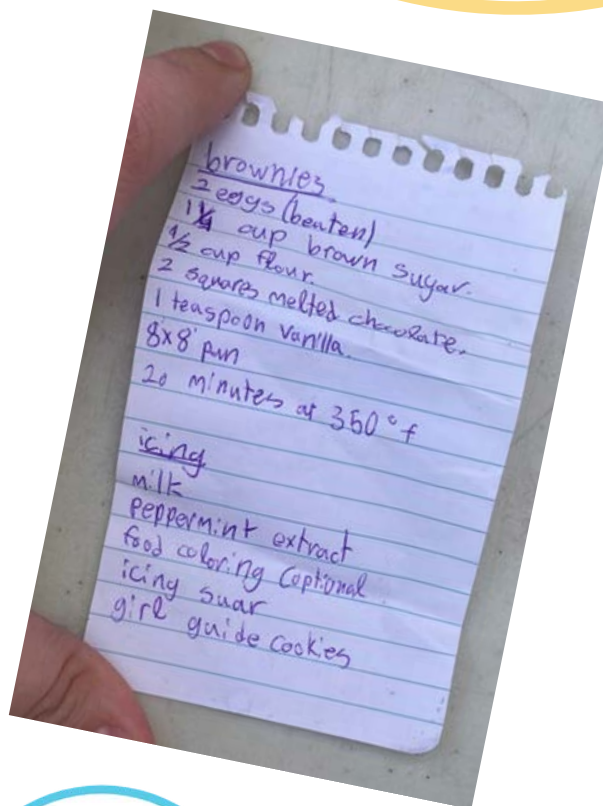 brownies
2 eggs (beaten)
1 1/4 cup brown sugar.
1/2 cup flour.
2 squares melted chocolate.
1 teaspoon vanilla.
8x8" pan
20 minutes at 350°f
icing
milk
peppermint extract
food coloring (optional
icing suar
girl guide cookies